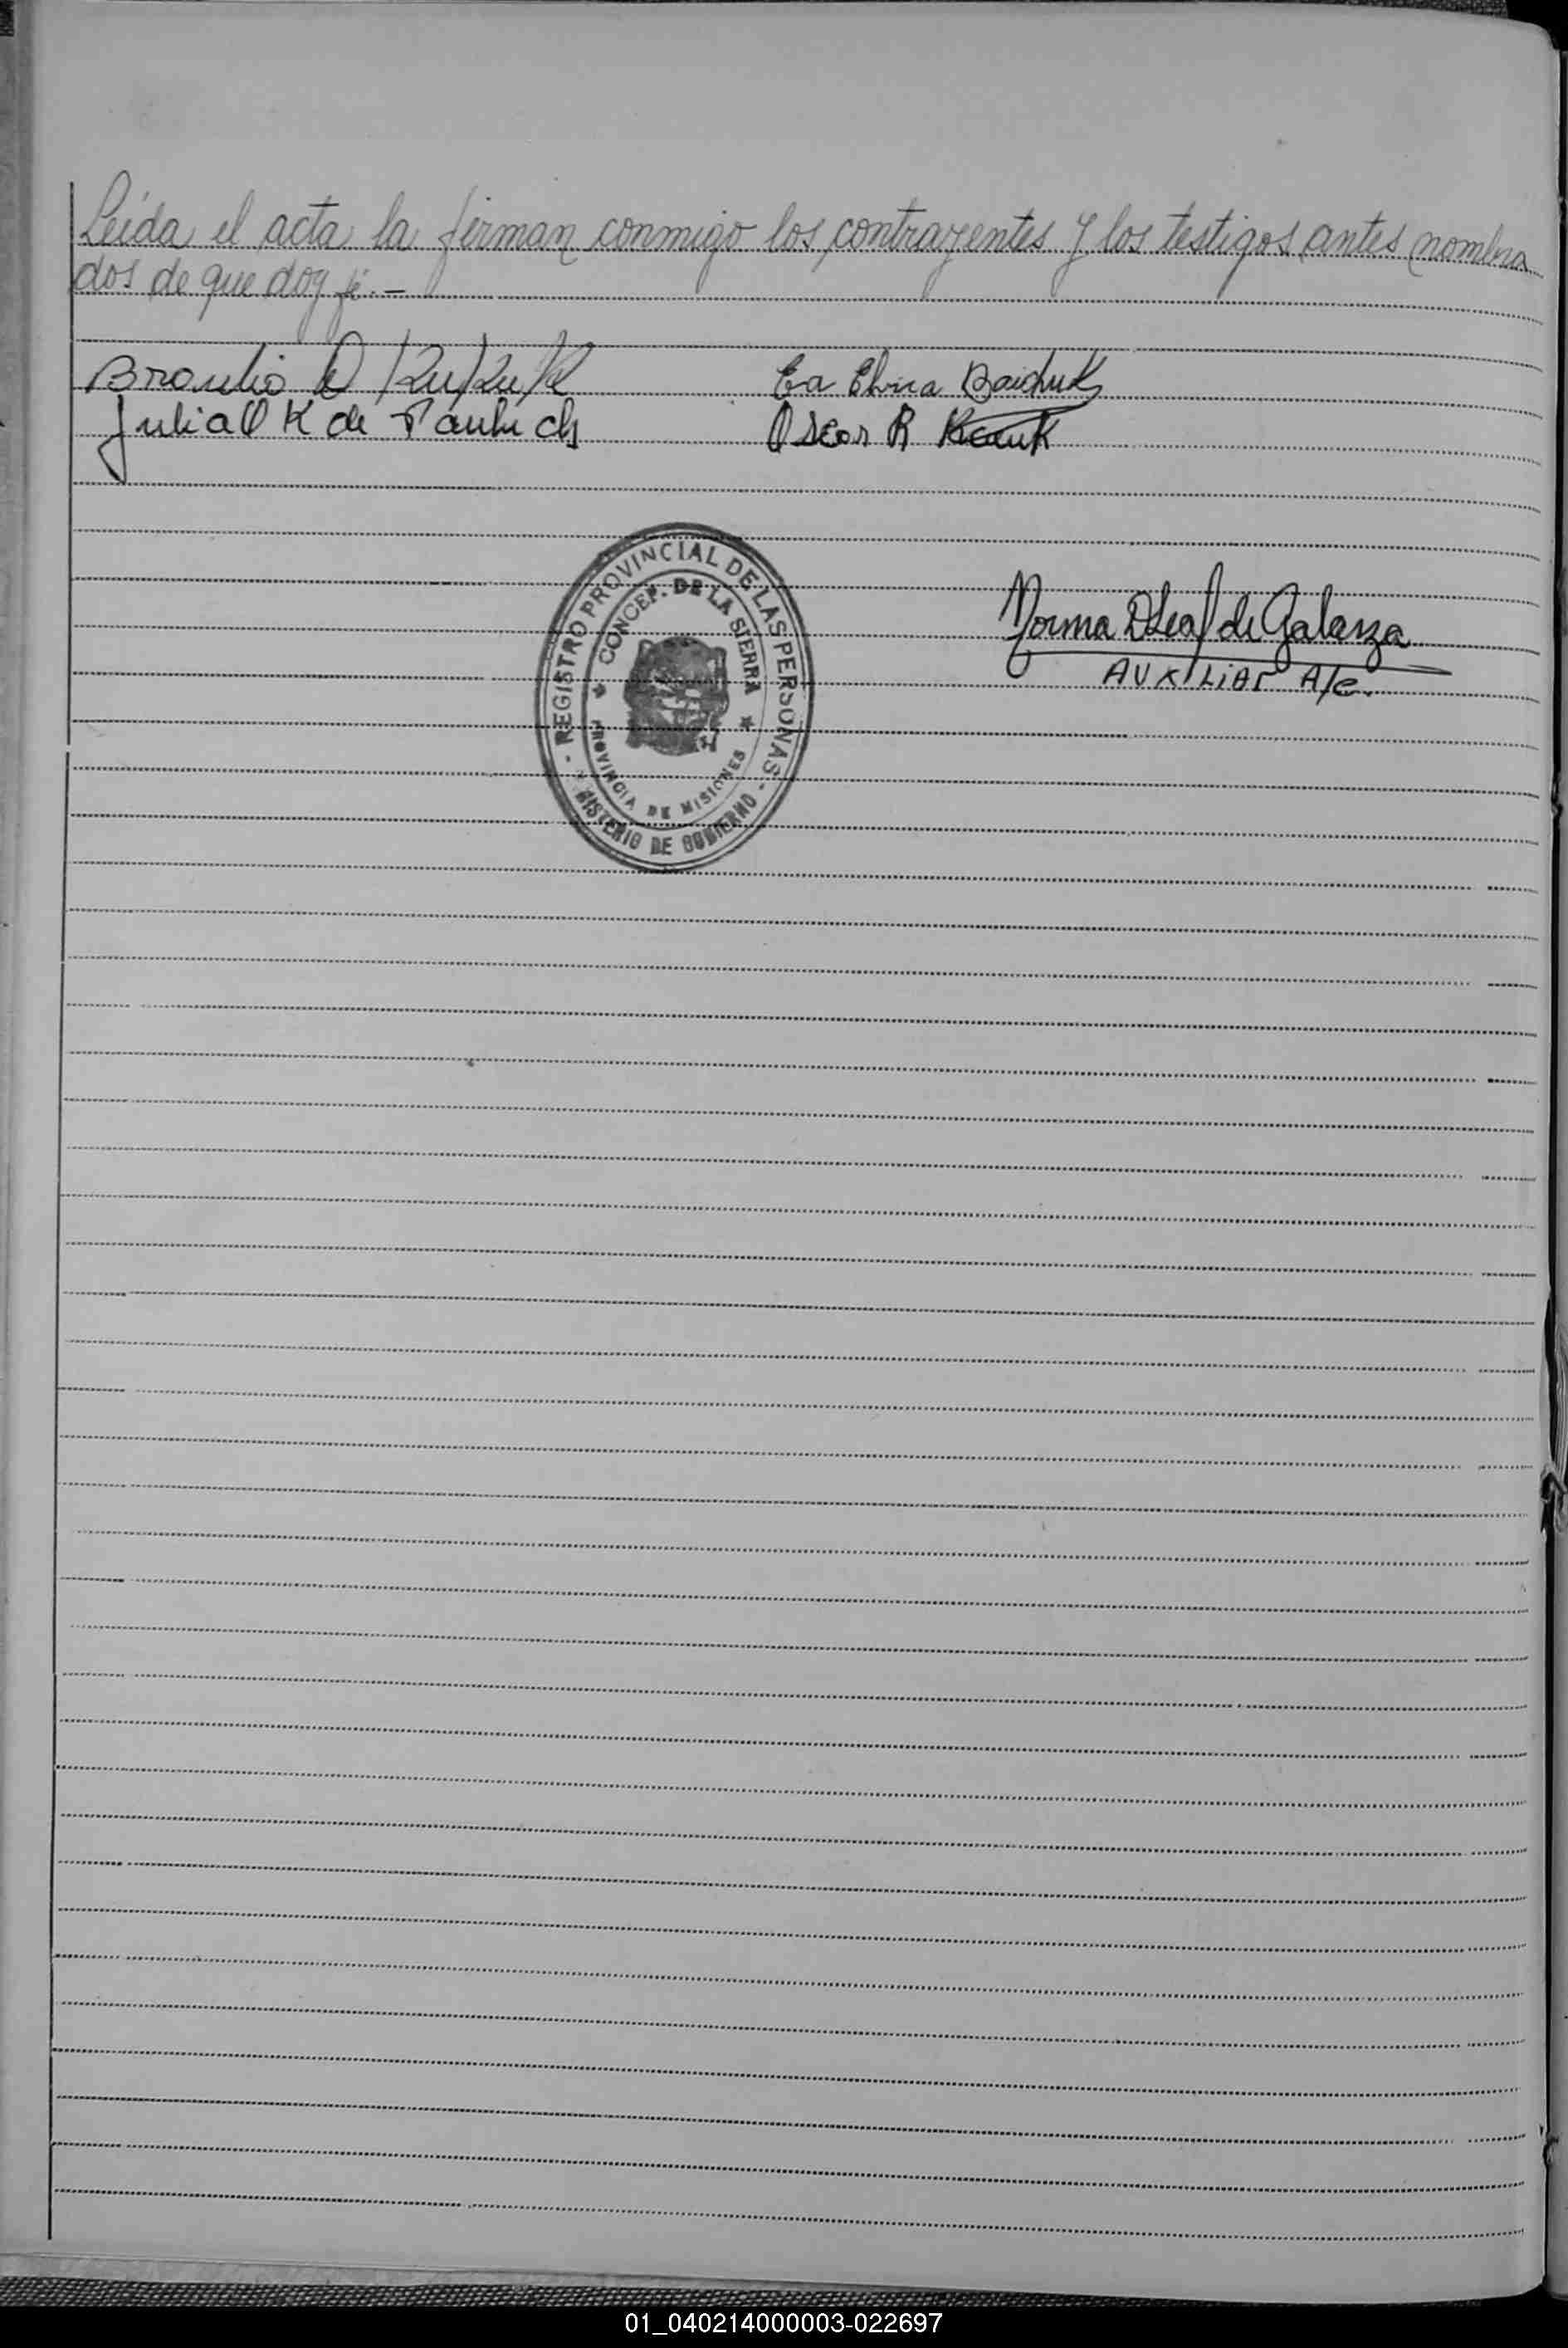 Leída el acta la firman conmigo los contrayentes y los testigos antes nombra
dos de que doy fé.-
Braulio D Kukuk
Eva Elvira Baichuk
Julia O K de
Oscar R
REGISTRO PROVINCIAL DE LAS PERSONAS
CONCEP. DE LA SIERRA
PROVINCIA DE MISIONES
NISTERIO DE GOBIERNO
Norma D Leal de Galarza
AUXILIAR A/c.
01_040214000003-022697